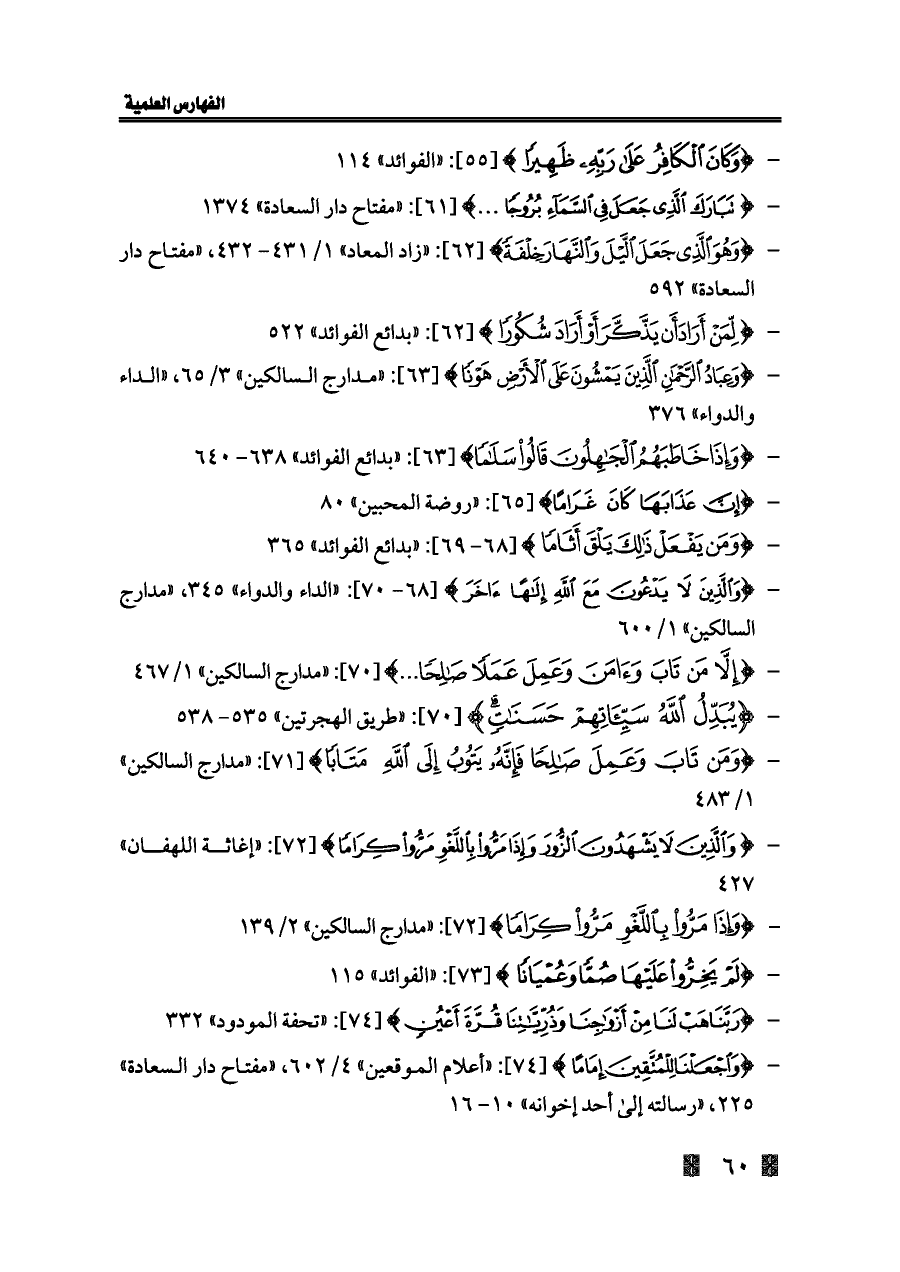 الفهارس العلمية
- ﴿وَكَانَ ٱلْكَافِرُ عَلَىٰ رَبِّهِۦ ظَهِيرًا ﴾ [٥٥]: «الفوائد» ١١٤
- ﴿ نَبَارَكَ ٱلَّذِى جَعَلَ فِى ٱلسَّمَآءِ بُرُوجًا ...﴾ [٦١]: «مفتاح دار السعادة» ١٣٧٤
- ﴿وَهُوَ ٱلَّذِى جَعَلَ ٱلَّيْلَ وَٱلنَّهَارَ خِلْفَةً﴾ [٦٢]: «زاد المعاد» ١/ ٤٣١- ٤٣٢، «مفتاح دار
السعادة» ٥٩٢
- ﴿لِّمَنْ أَرَادَ أَن يَذَّكَّرَ أَوْ أَرَادَ شُكُورًا ﴾ [٦٢]: «بدائع الفوائد» ٥٢٢
- ﴿وَعِبَادُ ٱلرَّحْمَٰنِ ٱلَّذِينَ يَمْشُونَ عَلَى ٱلْأَرْضِ هَوْنًا﴾ [٦٣]: «مدارج السالكين» ٣/ ٦٥، «الداء
والدواء» ٣٧٦
- ﴿وَإِذَا خَاطَبَهُمُ ٱلْجَٰهِلُونَ قَالُوا۟ سَلَٰمًا﴾ [٦٣]: «بدائع الفوائد» ٦٣٨- ٦٤٠
- ﴿إِنَّ عَذَابَهَا كَانَ غَرَامًا﴾ [٦٥]: «روضة المحبين» ٨٠
- ﴿وَمَن يَفْعَلْ ذَٰلِكَ يَلْقَ أَثَامًا ﴾ [٦٨- ٦٩]: «بدائع الفوائد» ٣٦٥
- ﴿وَٱلَّذِينَ لَا يَدْعُونَ مَعَ ٱللَّهِ إِلَٰهًا ءَاخَرَ ﴾ [٦٨- ٧٠]: «الداء والدواء» ٣٤٥، «مدارج
السالكين» ١/ ٦٠٠
- ﴿إِلَّا مَن تَابَ وَءَامَنَ وَعَمِلَ عَمَلًا صَٰلِحًا...﴾ [٧٠]: «مدارج السالكين» ١/ ٤٦٧
- ﴿يُبَدِّلُ ٱللَّهُ سَيِّـَٔاتِهِمْ حَسَنَٰتٍ ۗ﴾ [٧٠]: «طريق الهجرتين» ٥٣٥- ٥٣٨
- ﴿وَمَن تَابَ وَعَمِلَ صَٰلِحًا فَإِنَّهُۥ يَتُوبُ إِلَى ٱللَّهِ مَتَابًا﴾ [٧١]: «مدارج السالكين»
١/ ٤٨٣
- ﴿ وَٱلَّذِينَ لَا يَشْهَدُونَ ٱلزُّورَ وَإِذَا مَرُّوا۟ بِٱللَّغْوِ مَرُّوا۟ كِرَامًا﴾ [٧٢]: «إغاثة اللهفان»
٤٢٧
- ﴿وَإِذَا مَرُّوا۟ بِٱللَّغْوِ مَرُّوا۟ كِرَامًا﴾ [٧٢]: «مدارج السالكين» ٢/ ١٣٩
- ﴿لَمْ يَخِرُّوا۟ عَلَيْهَا صُمًّا وَعُمْيَانًا ﴾ [٧٣]: «الفوائد» ١١٥
- ﴿رَبَّنَا هَبْ لَنَا مِنْ أَزْوَٰجِنَا وَذُرِّيَّٰتِنَا قُرَّةَ أَعْيُنٍ ﴾ [٧٤]: «تحفة المودود» ٣٣٢
- ﴿وَٱجْعَلْنَا لِلْمُتَّقِينَ إِمَامًا ﴾ [٧٤]: «أعلام الموقعين» ٤/ ٦٠٢، «مفتاح دار السعادة»
٢٢٥، «رسالته إلىٰ أحد إخوانه» ١٠- ١٦
٦٠